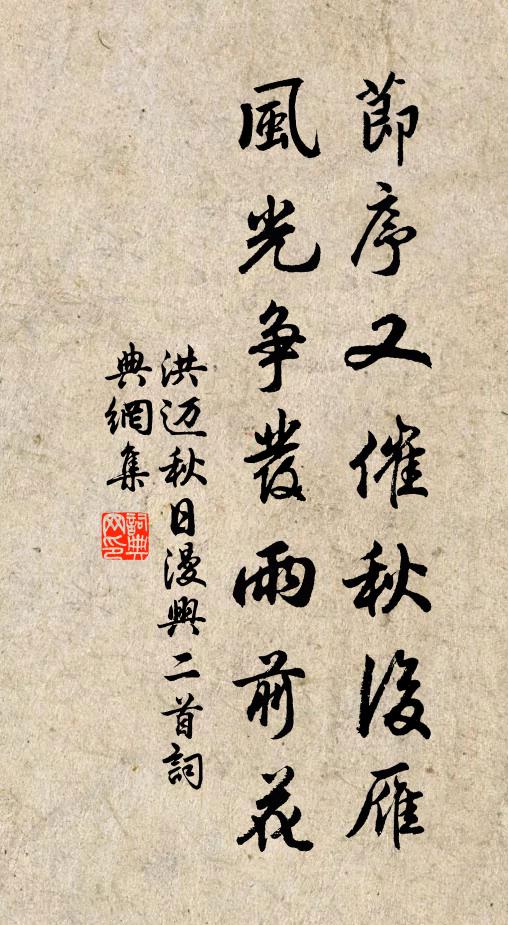 節序又催秋後雁
風光争發雨前花
洪迈秋日漫興二首詞
典網集
詞典网印